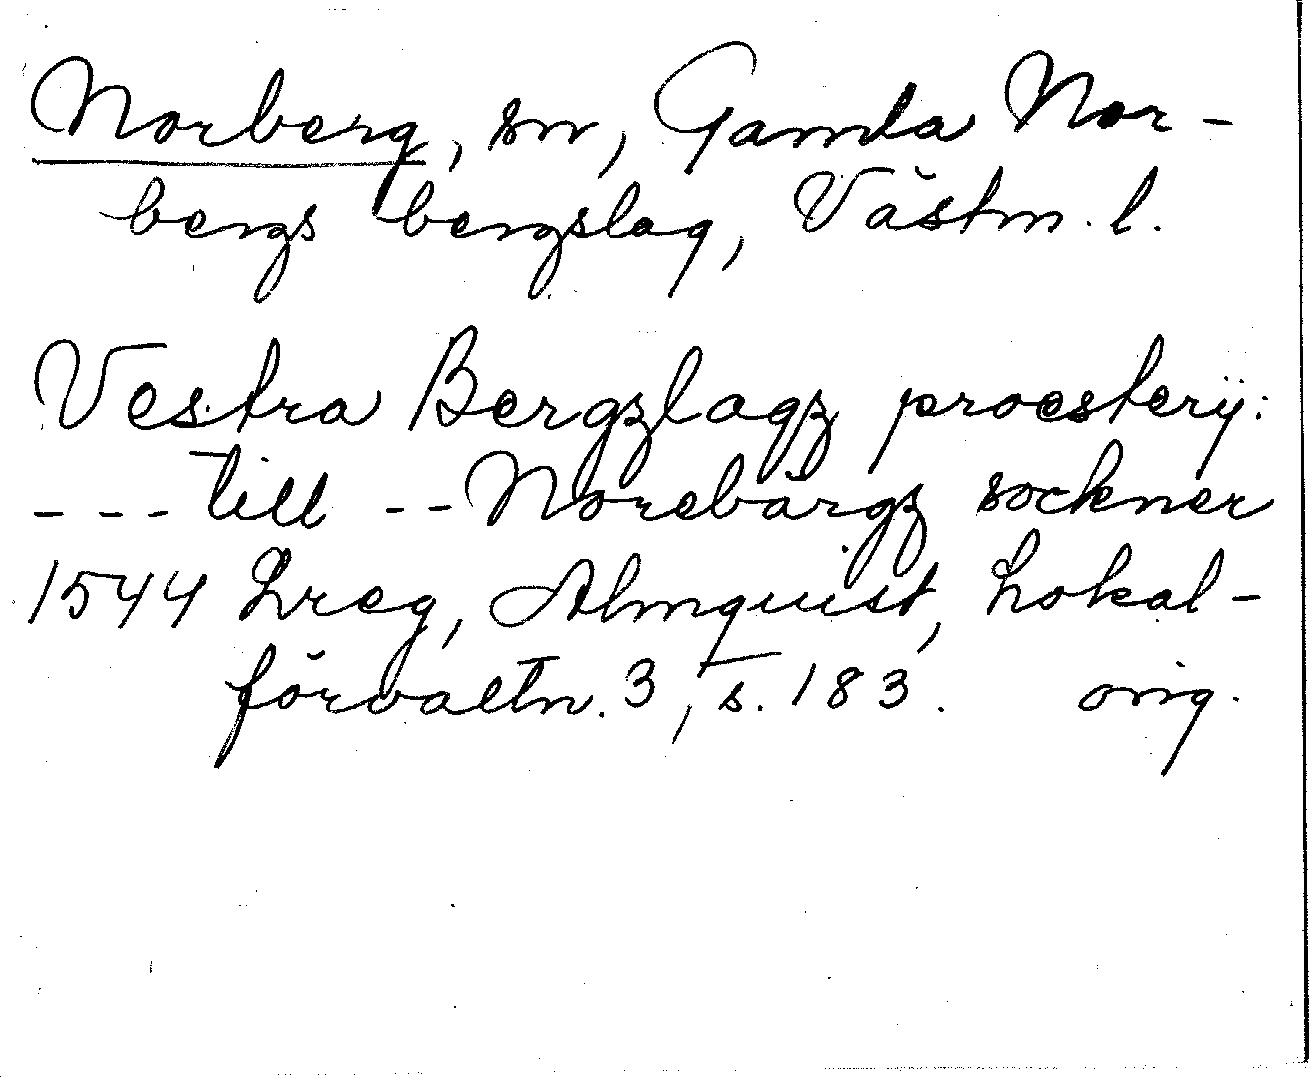 Norberg, sn, Gamla Nor-
bergs bergslag, Västm. l.
Vestra Bergzlagz proesterij:
--- till -- Norebärgz sockner
1544 Lreg, Almquist, Lokal-
förvaltn. 3, s. 183. orig.